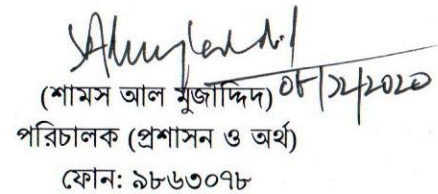 (শামস আল মুজাদ্দিদ)
পরিচালক (প্রশাসন ও অর্থ)
ফোন: ৯৮৬৩০৭৮